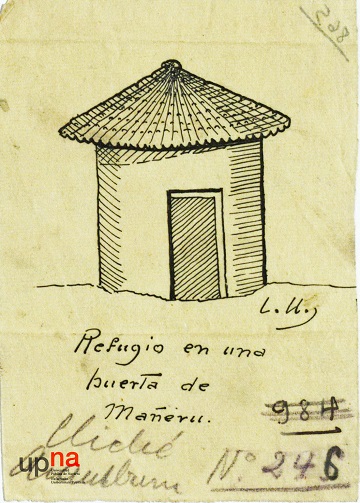 238
L. U.
Refugio en una
huerta de
Mañeru.
984
Cliché
Nº 246
upna